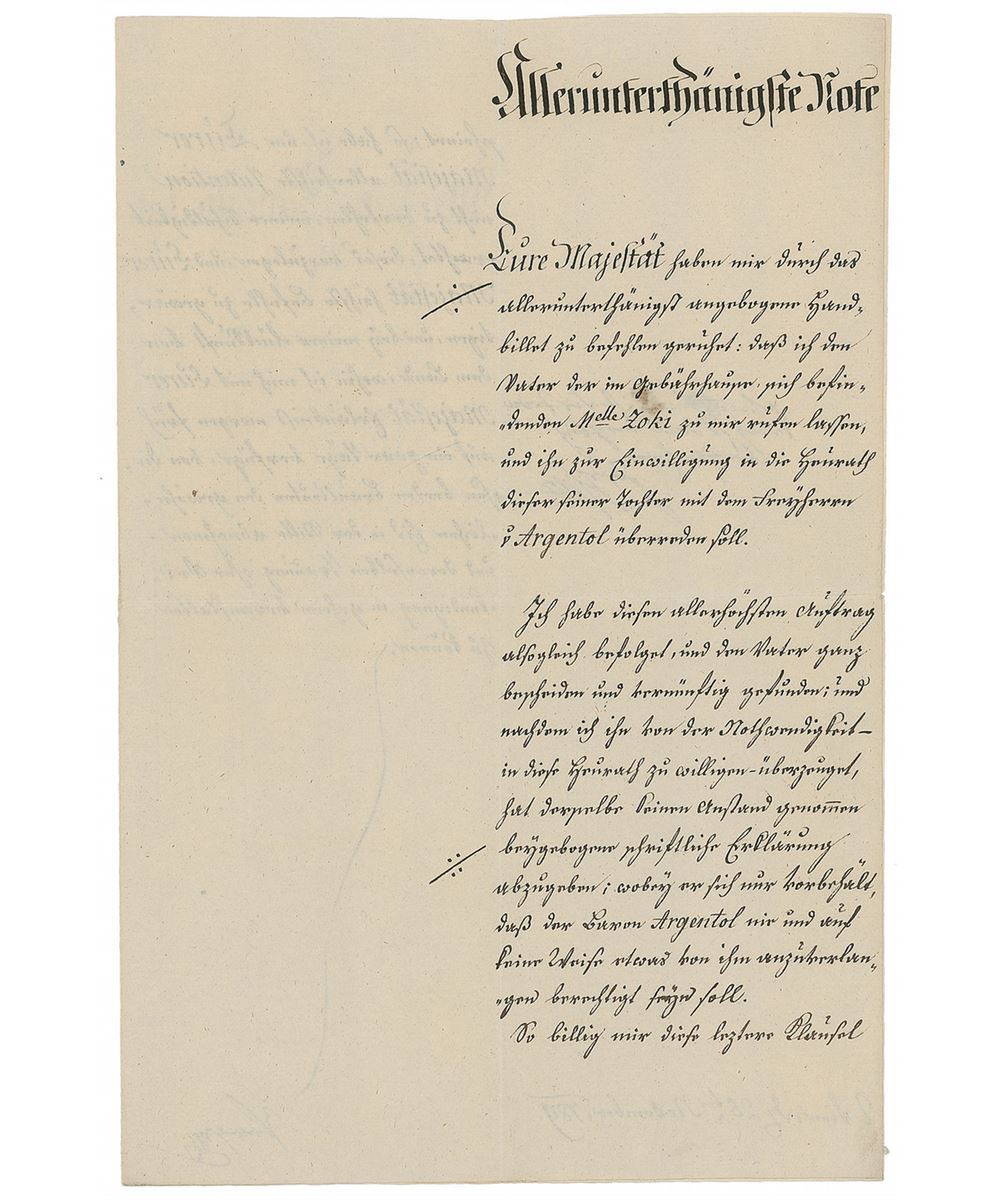 Allerunterthänigste Note
Eure Majestät haben mir durch das
allerunterthänigst angebogene Hand-
billet zu befehlen geruhet: daß ich den
Vater der im Gebährhause sich befin-
-denden Melle Zoki zu mir rufen lassen,
und ihn zur Einwilligung in die Heurath
dieser seiner Tochter mit dem Freyherrn
v Argentol überreden soll.
Ich habe diesen allerhöchsten Auftrag
alsogleich befolget, und den Vater ganz
bescheiden und vernünftig gefunden; und
nachdem ich ihn von der Nothwendigkeit –
in diese Heurath zu willigen – überzeuget,
hat derselbe keinen Anstand genommen
beygebogene schriftliche Erklärung
abzugeben; wobey er sich nur vorbehält,
daß der Baron Argentol nie und auf
keine Weise etwas von ihm anzuverlan-
-gen berechtigt seyn soll.
So billig mir diese leztere Klausel